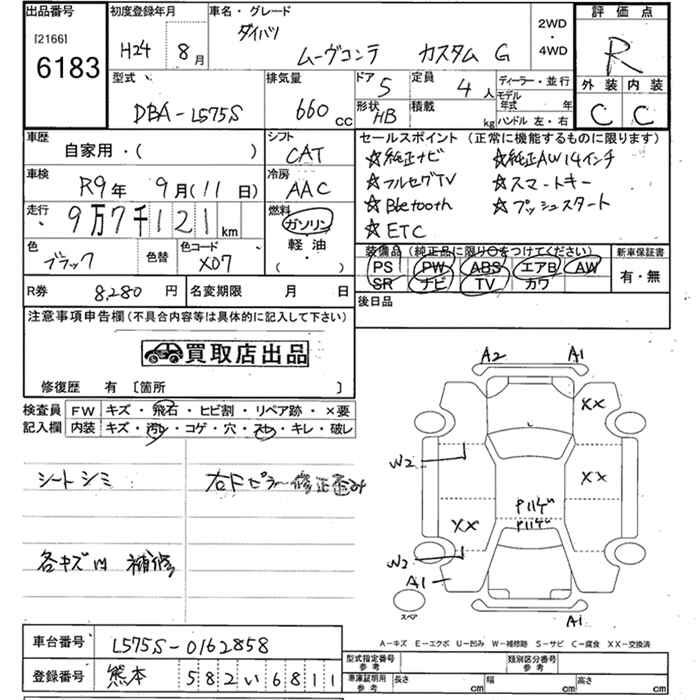 出品番号
[2166]
6183
初度登録年月
H24 8月
車名・グレード
ダイハツ
ムーヴコンテ カスタム G
2WD
・
4WD
評価点
R
外装 内装
C C
型式
DBA-L575S
排気量
660 cc
ドア
5
定員
4人
形状
HB
積載
kg
ディーラー・並行
モデル
年式 年
ハンドル 左・右
車歴
自家用・( )
シフト
CAT
セールスポイント (正常に機能するものに限ります)
☆純正ナビ ☆純正AW14インチ
☆フルセグTV ☆スマートキー
☆Bletooth ☆プッシュスタート
☆ETC
車検
R9年 9月(11日)
冷房
AAC
走行
9万7千121km
燃料
ガソリン
軽・油
( )
色
ブラック
色替
色コード
X07
装備品 (純正品に限り○をつけてください)
PS PW ABS エアB AW
SR ナビ TV カワ
新車保証書
有・無
R券
8,280円
名変期限 月 日
後日品
注意事項申告欄(不具合内容等は具体的に記入して下さい)
買取店出品
修復歴 有 〔箇所 〕
検査員
記入欄
FW キズ・飛石・ヒビ割・リペア跡・×要
内装 キズ・汚レ・コゲ・穴・スレ・キレ・破レ
シートシミ
右Fピラー修正
各キズ凹 補修
A2 A1
XX
W2
XX
Pハゲ
Pハゲ
XX
W2
A1
スペア
A1
A-キズ E-エクボ U-凹み W-補修跡 S-サビ C-腐食 XX-交換済
車台番号
L575S-0162858
登録番号
熊本 582い6811
型式指定番号
参考
類別区分番号
参考
車庫証明用
参考
長さ cm
幅 cm
高さ cm